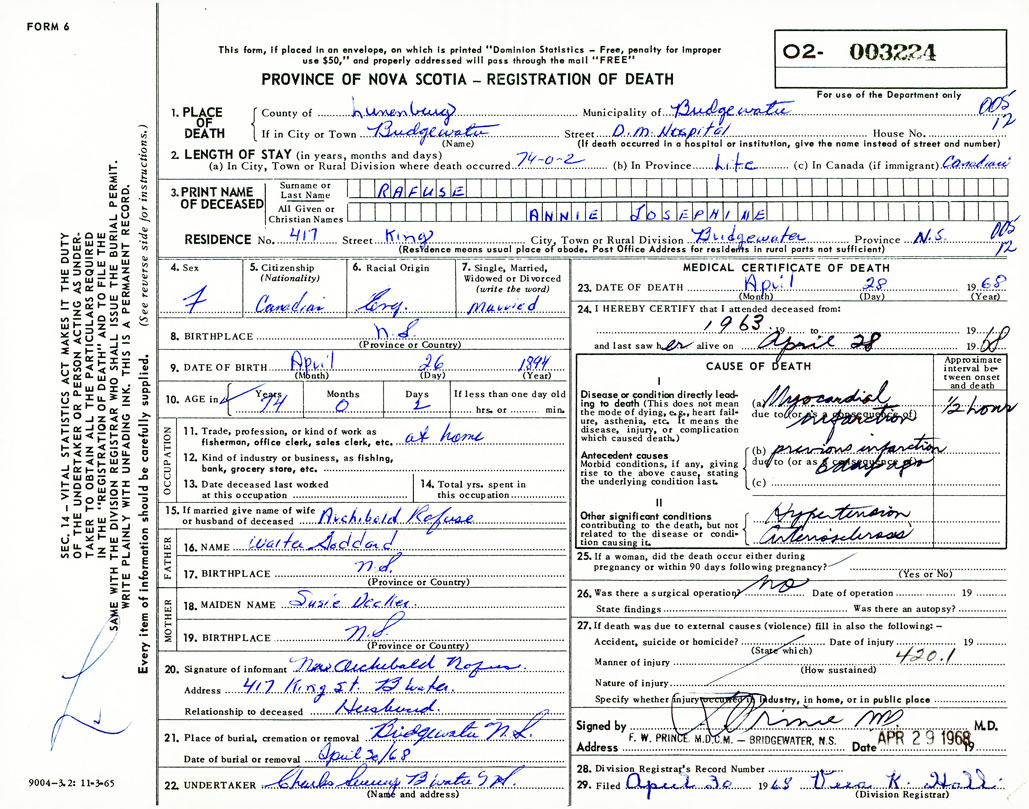 FORM 6
This form, if placed in an envelope, on which is printed "Dominion Statistics – Free, penalty for improper
use $50," and properly addressed will pass through the mail "FREE"
PROVINCE OF NOVA SCOTIA – REGISTRATION OF DEATH
O2- 003224
For use of the Department only
005
12
1. PLACE OF DEATH
County of Lunenburg Municipality of Bridgewater
If in City or Town Bridgewater Street D.M. Hospital House No.
(Name) (If death occurred in a hospital or institution, give the name instead of street and number)
2. LENGTH OF STAY (in years, months and days)
(a) In City, Town or Rural Division where death occurred 74-0-2 (b) In Province Life (c) In Canada (if immigrant) Canadian
3. PRINT NAME OF DECEASED
Surname or Last Name RAFUSE
All Given or Christian Names ANNIE JOSEPHINE
RESIDENCE No. 417 Street King City, Town or Rural Division Bridgewater Province N.S. 005
12
(Residence means usual place of abode. Post Office Address for residents in rural parts not sufficient)
4. Sex
F
5. Citizenship
(Nationality)
Canadian
6. Racial Origin
Eng.
7. Single, Married, Widowed or Divorced
(write the word)
Married
8. BIRTHPLACE N.S.
(Province or Country)
9. DATE OF BIRTH April 26 1894
(Month) (Day) (Year)
10. AGE in Years 74 Months 0 Days 2 If less than one day old
hrs. or min.
OCCUPATION
11. Trade, profession, or kind of work as
fisherman, office clerk, sales clerk, etc. at home
12. Kind of industry or business, as fishing,
bank, grocery store, etc.
13. Date deceased last worked
at this occupation
14. Total yrs. spent in
this occupation
15. If married give name of wife
or husband of deceased Archibald Rafuse
FATHER
16. NAME Walter Goddard
17. BIRTHPLACE N.S.
(Province or Country)
MOTHER
18. MAIDEN NAME Susie Decker
19. BIRTHPLACE N.S.
(Province or Country)
20. Signature of informant Archibald
Address 417 King St. B'water.
Relationship to deceased Husband
21. Place of burial, cremation or removal Bridgewater N.S.
Date of burial or removal April 30/68
22. UNDERTAKER Charles B'water
(Name and address)
MEDICAL CERTIFICATE OF DEATH
23. DATE OF DEATH April 28 1968
(Month) (Day) (Year)
24. I HEREBY CERTIFY that I attended deceased from:
1963 19 to 19
and last saw her alive on April 28 1968
CAUSE OF DEATH
Approximate interval between onset and death
I
Disease or condition directly leading to death (This does not mean the mode of dying, e.g., heart failure, asthenia, etc. It means the disease, injury, or complication which caused death.)
(a) Myocardial 1/2 hour
due to (or as a consequence of)
infarction
Antecedent causes
Morbid conditions, if any, giving rise to the above cause, stating the underlying condition last.
(b) previous infarction
due to (or as a consequence of)
(c)
II
Other significant conditions
contributing to the death, but not related to the disease or condition causing it.
Hypertension
Arteriosclerosis
25. If a woman, did the death occur either during
pregnancy or within 90 days following pregnancy?
(Yes or No)
26. Was there a surgical operation? no Date of operation 19
State findings Was there an autopsy?
27. If death was due to external causes (violence) fill in also the following: –
Accident, suicide or homicide? Date of injury 19
(State which)
Manner of injury 420.1
(How sustained)
Nature of injury
Specify whether injury occurred in industry, in home, or in public place
Signed by Prince MD M.D.
F. W. PRINCE. M.D.C.M. – BRIDGEWATER, N.S.
Address Date APR 29 1968 19
28. Division Registrar's Record Number
29. Filed April 30 1968 Vera K.
(Division Registrar)
SEC. 14 – VITAL STATISTICS ACT MAKES IT THE DUTY
OF THE UNDERTAKER OR PERSON ACTING AS UNDER-
TAKER TO OBTAIN ALL THE PARTICULARS REQUIRED
IN THE "REGISTRATION OF DEATH" AND TO FILE THE
SAME WITH THE DIVISION REGISTRAR WHO SHALL ISSUE THE BURIAL PERMIT.
WRITE PLAINLY WITH UNFADING INK. THIS IS A PERMANENT RECORD.
Every item of information should be carefully supplied. (See reverse side for instructions.)
9004-3.2: 11-3-65